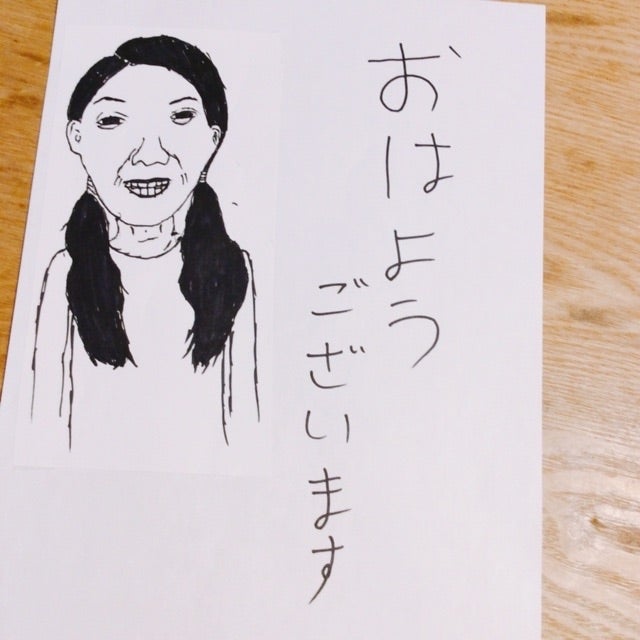 おはよう
ございます